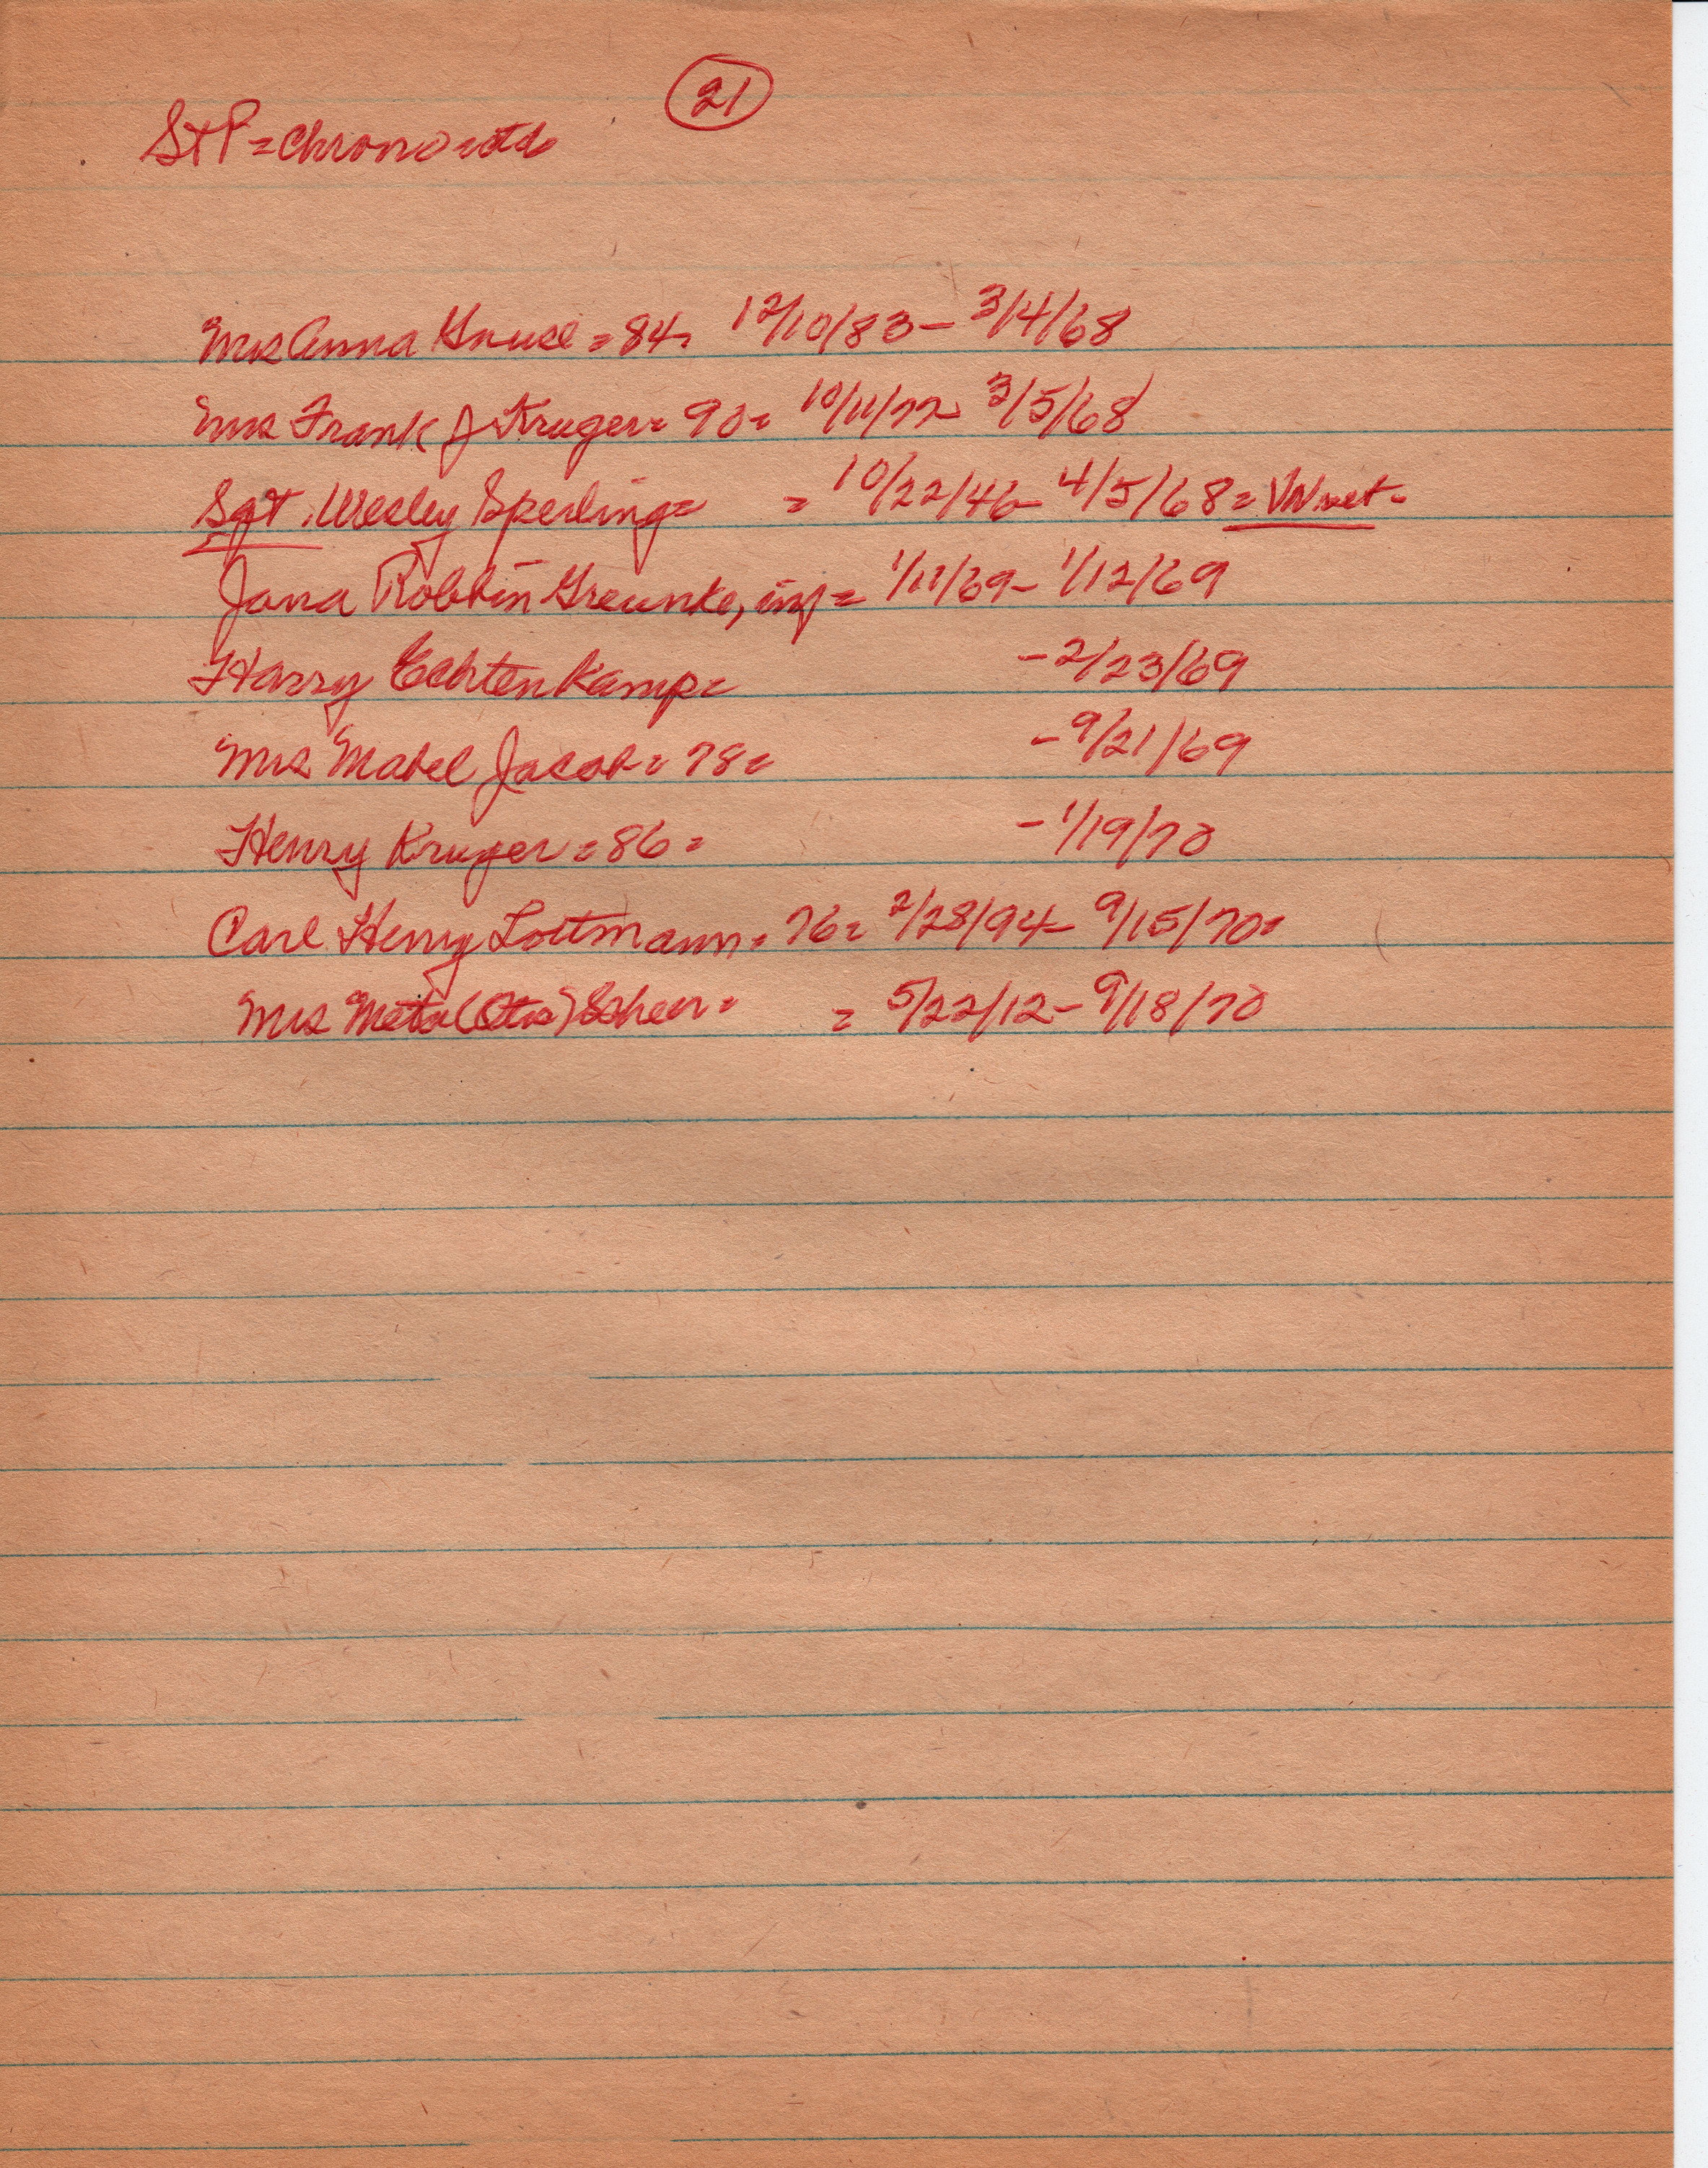 21
St P = Chrono = dth
Mrs Anna Kruse = 84 = 12/10/83 - 3/4/68
Mrs Frank J Kruger = 90 = 10/11/77 - 3/5/68
Sgt. Wesley Sperling = = 10/22/46 - 4/5/68 = VN vet -
Jana Robbin Greunke, inf = 1/11/69 - 1/12/69
Harry Echtenkamp = - 2/23/69
Mrs Mabel Jacob = 78 = - 9/21/69
Henry Kruger = 86 = - 1/19/70
Carl Henry Lottmann = 76 = 2/28/94 - 9/15/70 =
Mrs Meta (Otto) Scheer = = 5/22/12 - 9/18/70